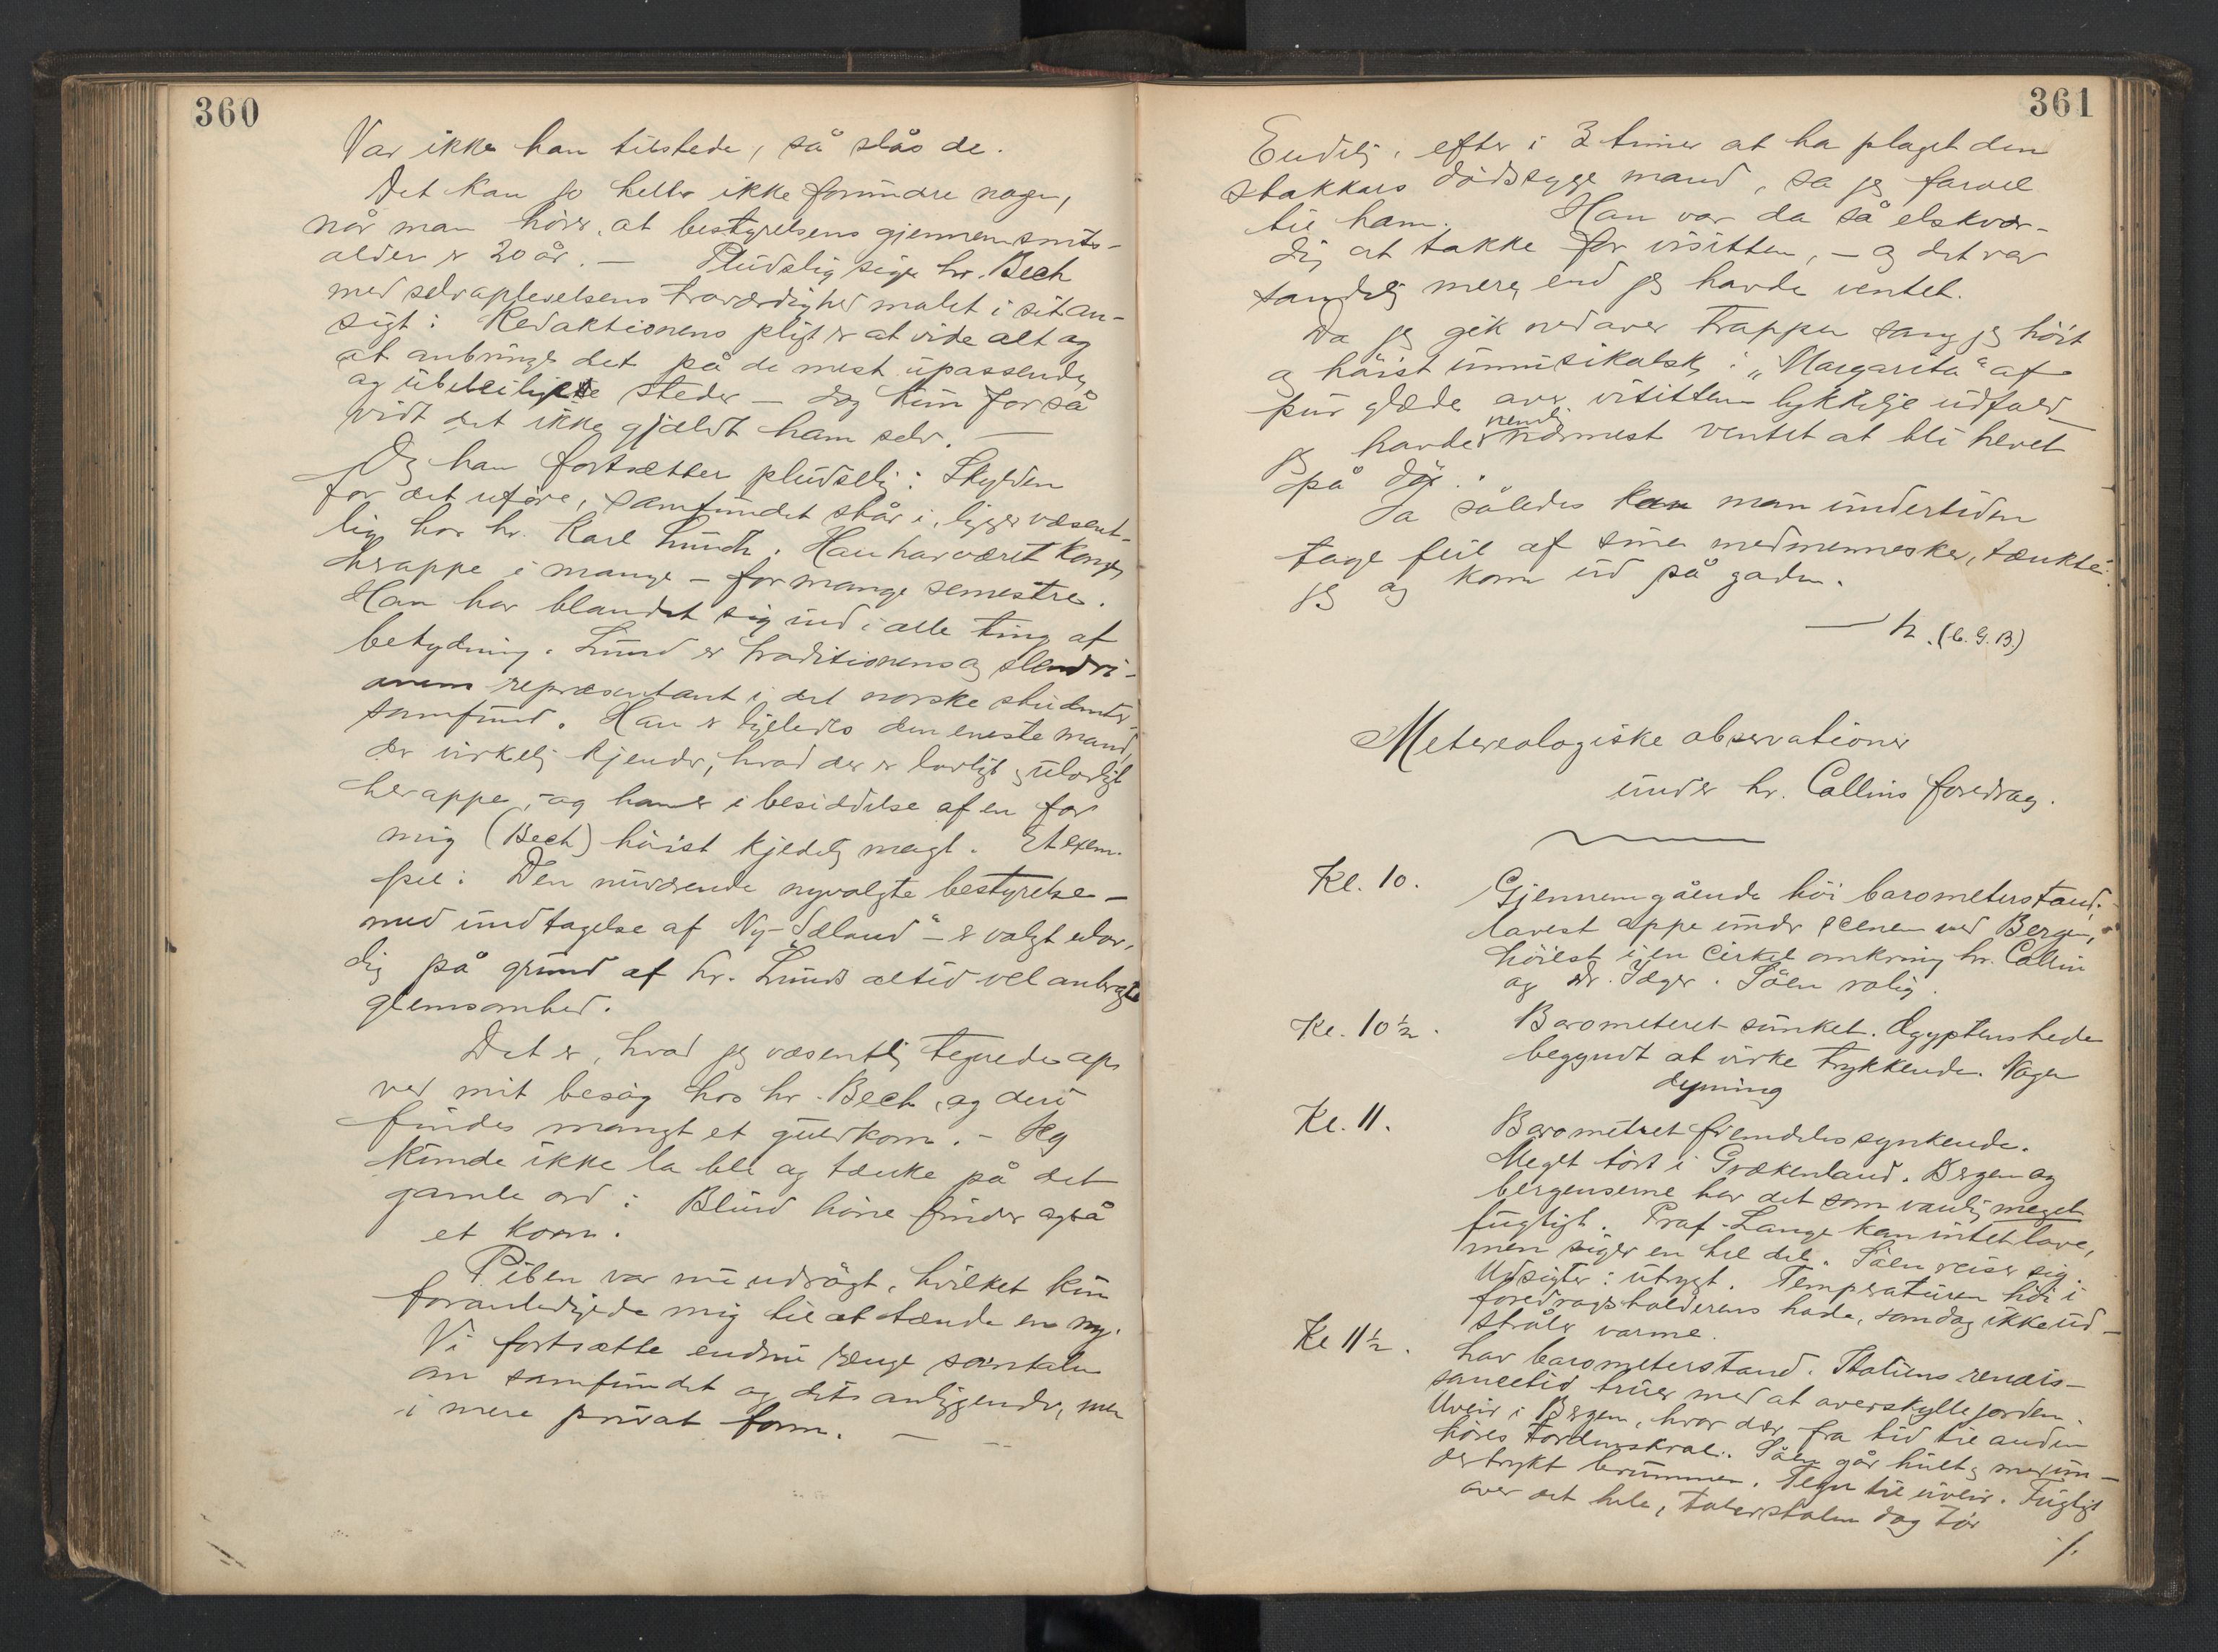 360
Var ikke han tilstede, så slås de.
Det kan jo heller ikke forundre nogen,
når man hører, at bestyrelsens gjennemsnits-
alder er 20 år. — Pludselig siger hr. Bech
med selvoplevelsens troværdighed malet i sit an-
sigt: Redaktionens pligt er at vide alt og
at anbringe det på de mest upassende
og ubeleilige steder — dog kun for så
vidt det ikke gjældt ham selv. —
Og han fortsætter pludselig: Skylden
for det uføre, samfundet står i, ligger væsent-
lig hos hr. Karl Lund. Han har været konge
heroppe i mange — for mange semestre.
Han har blandet sig ind i alle ting af
betydning. Lund er traditionens og slendri-
anens repræsentant i det norske studenter-
samfund. Han er ligeledes den eneste mand,
der virkelig kjender, hvad der er lovligt og ulovligt
heroppe, og han er i besiddelse af en for
mig (Bech) høist kjedelig magt. Et exem-
pel: Den nuværende nyvalgte bestyrelse —
med undtagelse af Ny-Jæland" — er valgt
på grund af hr. Lunds altid vel anbragte
glemsomhed.
Det er, hvad jeg væsentlig tegnede op
ved mit besøg hos hr. Bech, og deri
findes mangt et guldkorn. — Jeg
kunde ikke la bli og tænke på det
gamle ord: Blind høne finder også
et korn.
Piben var nu udrøgt, hvilket kun
foranledigede mig til at tænde en ny.
Vi fortsatte endnu længe samtalen
om samfundet og dets anliggender, men
i mere privat form. —
361
Endelig, efter i 3 timer at ha plaget den
stakkars dødssyge mand, sa jeg farvel
til ham. Han var da så elskvær-
dig at takke for visitten, — og det var
sandelig mere end jeg havde ventet.
Da jeg gik nedover trappen sang jeg høit
og høist umusikalsk: „Margarita" af
pur glæde over visittens lykkelige udfald
jeg havde nemlig nærmest ventet at bli hevet
på dør.
Ja således kan man undertiden
tage feil af sine medmennesker, tænkte
jeg og kom ud på gaden.
— h. (C. G. B.)
Metereologiske observationer
under hr. Collins foredrag.
Kl. 10. Gjennemgående høi barometerstand;
lavest oppe under scenen ved Bergen,
høiest i en cirkel omkring hr. Collin
og dr. Jæger. Søen rolig.
Kl. 10 ½. Barometeret sunket. Ægyptens hede
begyndt at virke trykkende. Nogen
dynning
Kl. 11. Barometret fremdeles synkende.
Meget tørt i Grækenland. Bergen og
bergenserne har det som vanlig meget
fugtigt. Prof. Lange kan intet love,
men siger en hel del. Søen reiser sig.
Udsigter: utrygt. Temperaturen høi i
foredragsholderens hode, som dog ikke ud-
stråler varme.
Kl 11 ½. Lav barometerstand. Italiens renæis-
sancetid truer med at overskylle jorden.
Uveir i Bergen, hvor der fra tid til anden
høres tordenskrald. Søen går hult og med un-
dertrykt brummen. Tegn til uveir. Fugtigt
over det hele, talerstolen dog tør
/.